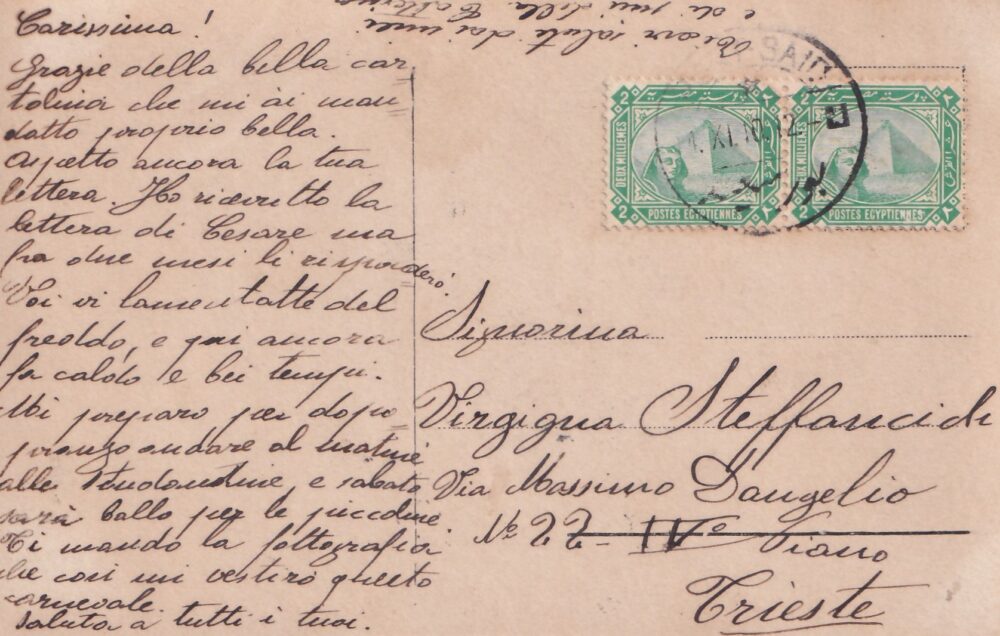 Carissima!
Grazie della bella car
tolina che mi ài man
datto proprio bella.
Aspetto ancora la tua
lettera. Ho ricevutto la
lettera di Cesare ma
fra due mesi li risponderò.
Voi vi lamentatte del
freddo, e qui ancora
fa caldo e bei tempi.
Mi preparo per dopo
pranzo andare al matinè
alle, e sabato
sarà ballo per le piccoline.
Ti mando la fottografia
che così mi vestirò questo
carnevale.
Saluta a tutti i tuoi.
cari saluti dai miei
e di più della
SAID
1. XI. 10. 12
بور سعيد
بوستة مصرية
2 ٢
DEUX MILLIEMES
POSTES EGYPTIENNES
2 ٢
بوستة مصرية
2 ٢
DEUX MILLIEMES
POSTES EGYPTIENNES
2 ٢
Signorina
Virgigna Steffancich
Via Massimo D'angelio
No 22 - IVo Piano
Trieste